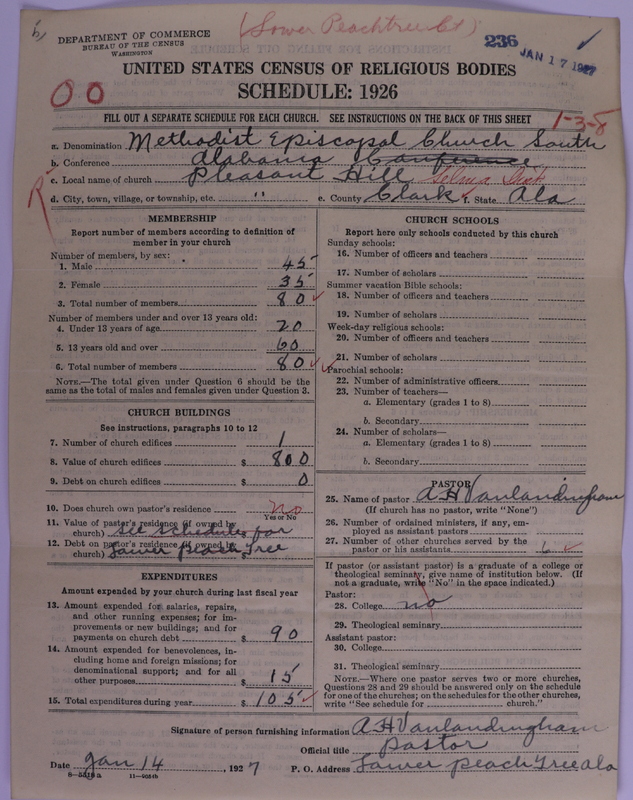 (Lower Peachtree Ct)
DEPARTMENT OF COMMERCE
BUREAU OF THE CENSUS
WASHINGTON
236
JAN 17 1927
UNITED STATES CENSUS OF RELIGIOUS BODIES
SCHEDULE: 1926
FILL OUT A SEPARATE SCHEDULE FOR EACH CHURCH. SEE INSTRUCTIONS ON THE BACK OF THIS SHEET
1-3-8
a. Denomination Methodist Episcopal Church South
b. Conference Alabama Conference
c. Local name of church Pleasant Hill Selma Dist
d. City, town, village, or township, etc. " e. County Clark f. State Ala
MEMBERSHIP
Report number of members according to definition of member in your church
Number of members, by sex:
1. Male 45
2. Female 35
3. Total number of members 80
Number of members under and over 13 years old:
4. Under 13 years of age 20
5. 13 years old and over 60
6. Total number of members 80
NOTE.—The total given under Question 6 should be the
same as the total of males and females given under Question 3.
CHURCH BUILDINGS
See instructions, paragraphs 10 to 12
7. Number of church edifices 1
8. Value of church edifices $ 800
9. Debt on church edifices $ 0
10. Does church own pastor's residence no
Yes or No
11. Value of pastor's residence (if owned by
church) see schedule for
12. Debt on pastor's residence (if owned by
church) Lower Peach Tree
EXPENDITURES
Amount expended by your church during last fiscal year
13. Amount expended for salaries, repairs,
and other running expenses; for im-
provements or new buildings; and for
payments on church debt $ 90
14. Amount expended for benevolences, in-
cluding home and foreign missions; for
denominational support; and for all
other purposes $ 15
15. Total expenditures during year $ 105
CHURCH SCHOOLS
Report here only schools conducted by this church
Sunday schools:
16. Number of officers and teachers
17. Number of scholars
Summer vacation Bible schools:
18. Number of officers and teachers
19. Number of scholars
Week-day religious schools:
20. Number of officers and teachers
21. Number of scholars
Parochial schools:
22. Number of administrative officers
23. Number of teachers—
a. Elementary (grades 1 to 8)
b. Secondary
24. Number of scholars—
a. Elementary (grades 1 to 8)
b. Secondary
PASTOR
25. Name of pastor A H Vanlandingham
(If church has no pastor, write "None")
26. Number of ordained ministers, if any, em-
ployed as assistant pastors
27. Number of other churches served by the
pastor or his assistants 6
If pastor (or assistant pastor) is a graduate of a college or
theological seminary, give name of institution below. (If
not a graduate, write "No" in the space indicated.)
Pastor:
28. College no
29. Theological seminary
Assistant pastor:
30. College
31. Theological seminary
NOTE.—Where one pastor serves two or more churches,
Questions 28 and 29 should be answered only on the schedule
for one of the churches; on the schedules for the other churches,
write "See schedule for church."
Signature of person furnishing information A H Vanlandingham
Official title Pastor
Date Jan 14, 1927 P. O. Address Lower Peach Tree Ala
8—5510 a 11—9054b